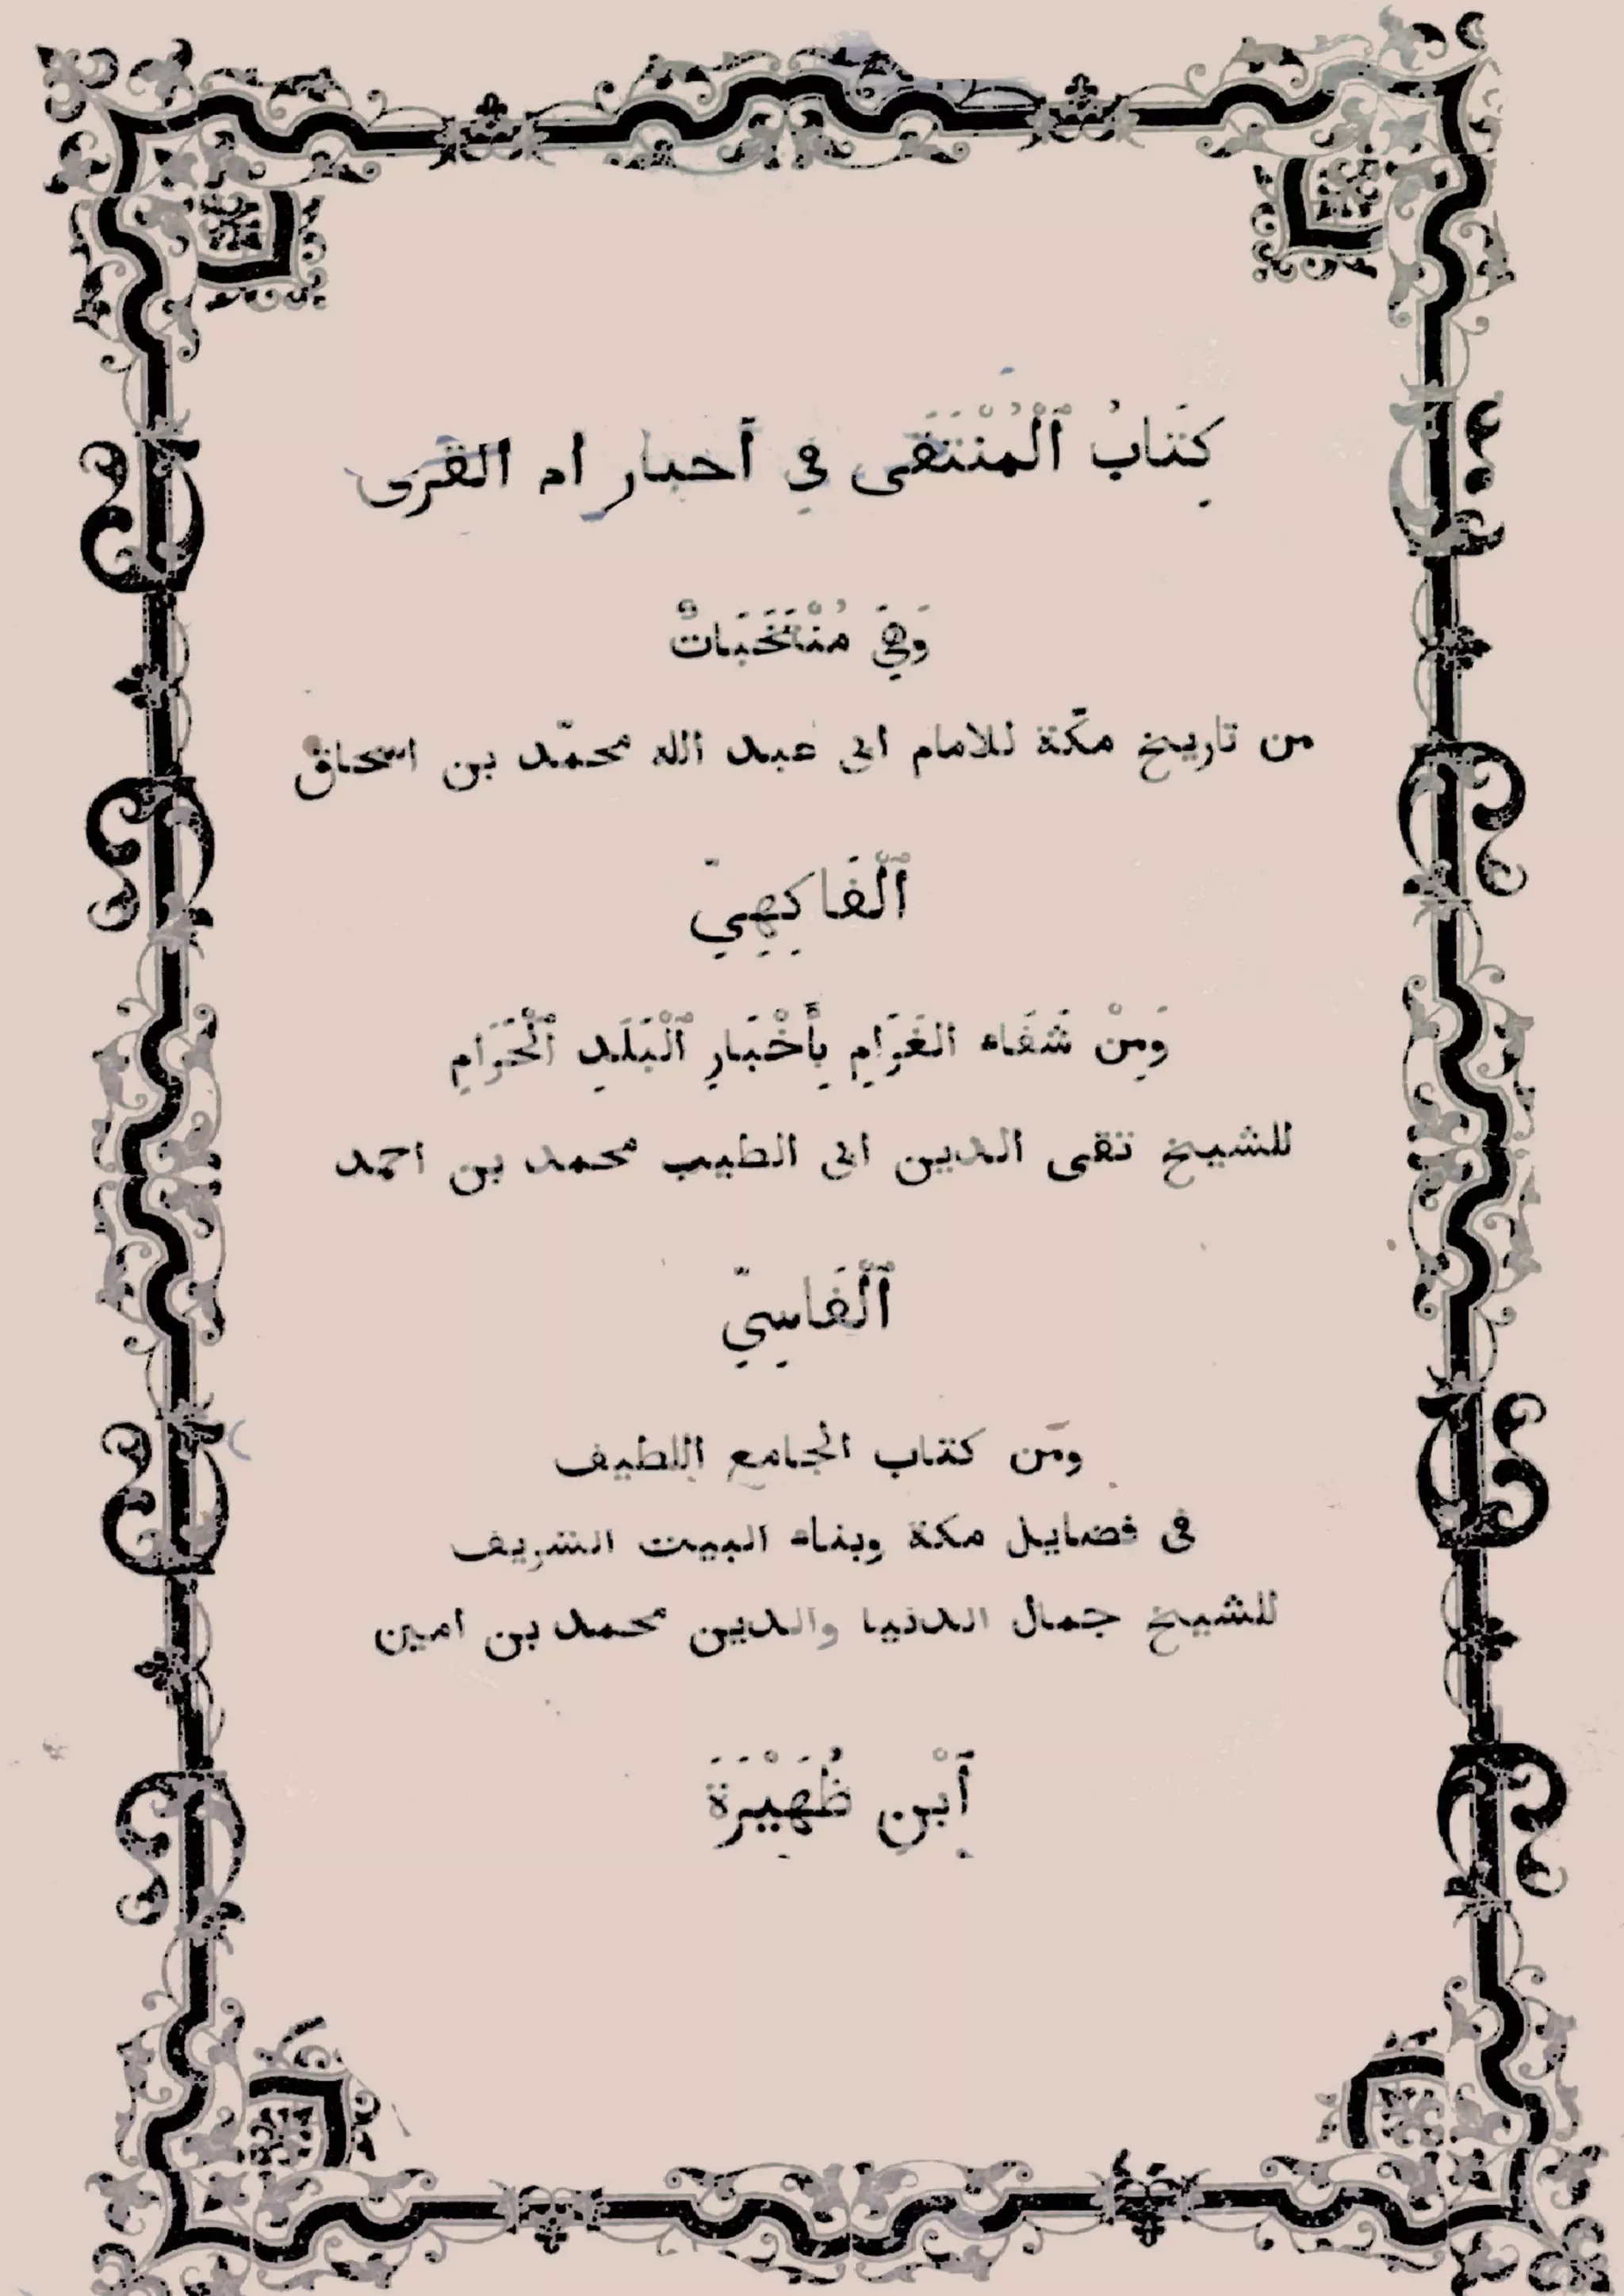 كِتَابُ ٱلْمُنْتَقَى فِي أَخبار ام القرى
وَهِيَ مُنْتَخَبَاتٌ
من تاريخ مكّة للامام ابى عبد الله محمّد بن اسحاق
ٱلْفَاكِهِيّ
وَمِنْ شَفَاء الغَرَامِ بِأَخْبَارِ ٱلْبَلَدِ ٱلْحَرَامِ
للشيخ تقى الدين ابى الطيب محمد بن احمد
ٱلْفَاسِيّ
ومن كتاب الجامع اللطيف
فى فضايل مكة وبناء البيت الشريف
للشيخ جمال الدنيا والدين محمد بن امين
ٱبْنِ ظُهَيْرَةَ